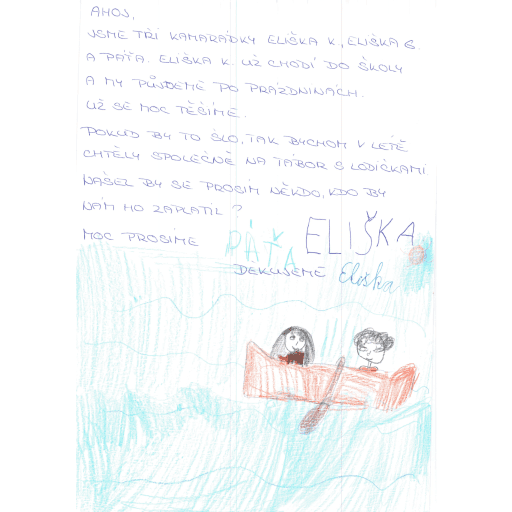 AHOJ,
JSME TŘI KAMARÁDKY ELIŠKA K., ELIŠKA G.
A PÁŤA. ELIŠKA K. UŽ CHODÍ DO ŠKOLY
A MY PŮJDEME PO PRÁZDNINÁCH.
UŽ SE MOC TĚŠÍME.
POKUD BY TO ŠLO, TAK BYCHOM V LÉTĚ
CHTĚLY SPOLEČNĚ NA TÁBOR S LODIČKAMI.
NAŠEL BY SE PROSÍM NĚKDO, KDO BY
NÁM HO ZAPLATIL?
MOC PROSÍME
PÁŤA
ELIŠKA
DĚKUJEME
Eliška